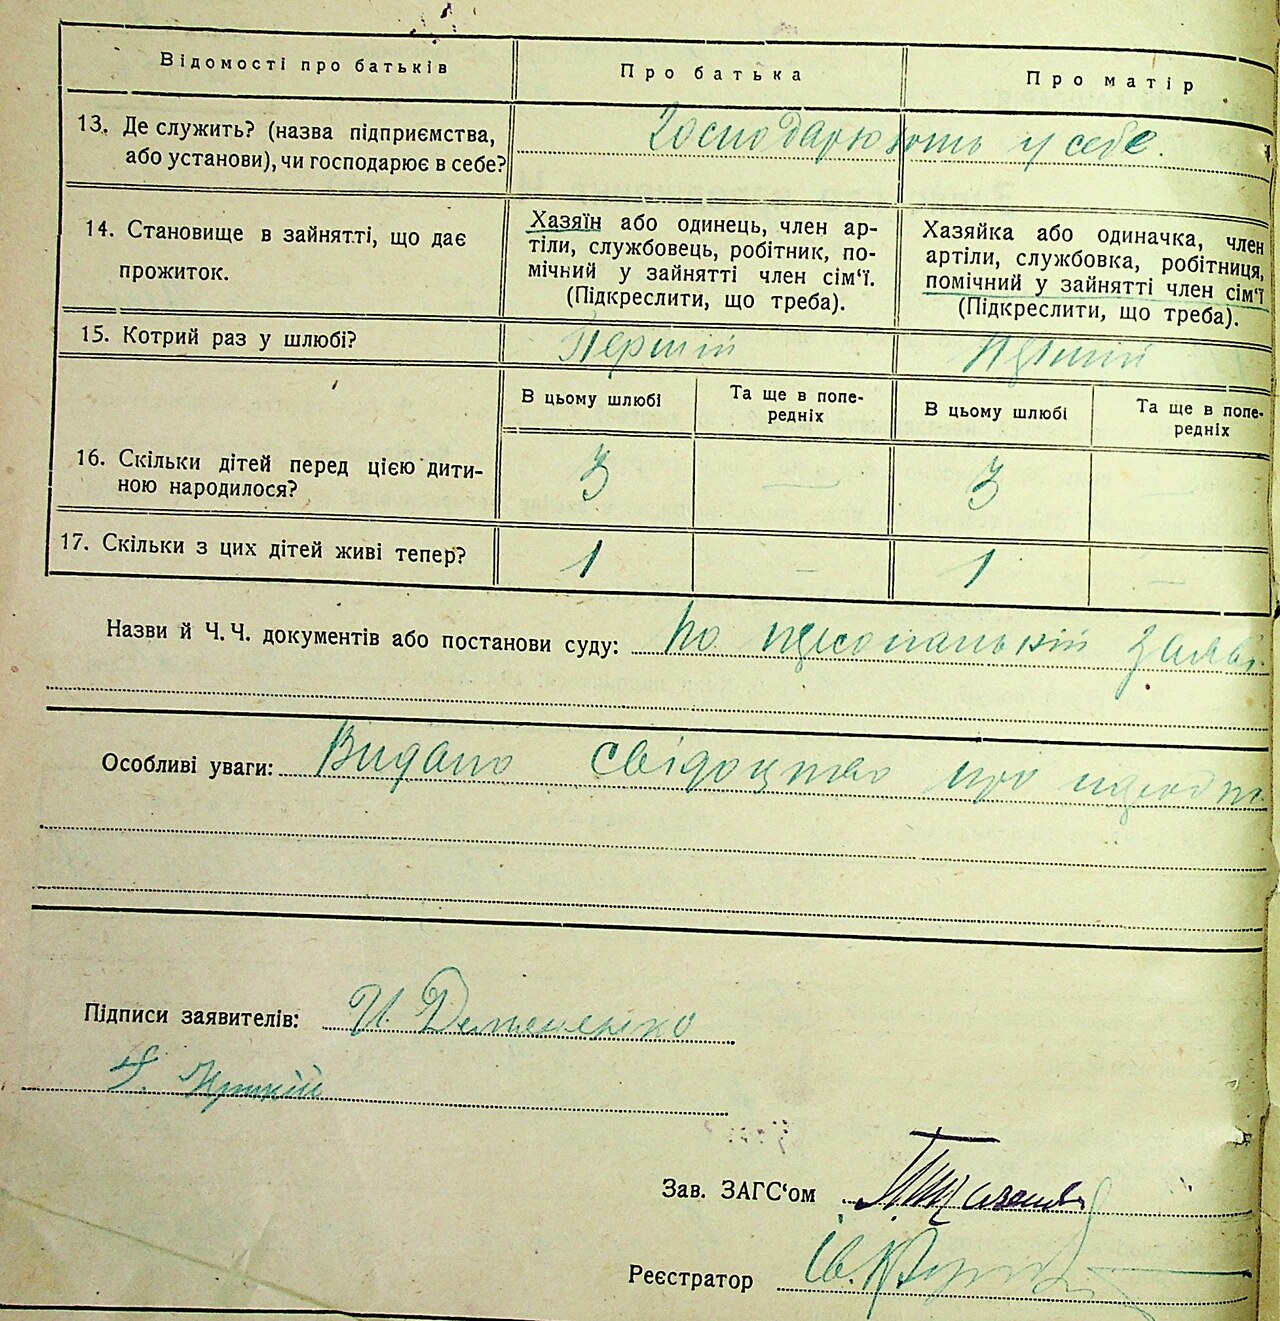 Відомості про батьків
Про батька
Про матір
13. Де служить? (назва підприємства,
або установи), чи господарює в себе?
Господарюють у себе.
14. Становище в зайнятті, що дає
прожиток.
Хазяїн або одинець, член ар-
тіли, службовець, робітник, по-
мічний у зайнятті член сім‘ї.
(Підкреслити, що треба).
Хазяйка або одиначка, член
артіли, службовка, робітниця,
помічний у зайнятті член сім‘ї
(Підкреслити, що треба).
15. Котрий раз у шлюбі?
Перший
Перший
В цьому шлюбі
Та ще в попе-
редніх
В цьому шлюбі
Та ще в попе-
редніх
16. Скільки дітей перед цією дити-
ною народилося?
3
—
3
—
17. Скільки з цих дітей живі тепер?
1
—
1
—
Назви й Ч. Ч. документів або постанови суду: По персональній заяві
Особливі уваги: Видано свідоцтво про
Підписи заявителів: И.
Зав. ЗАГС‘ом
Реєстратор Ів.